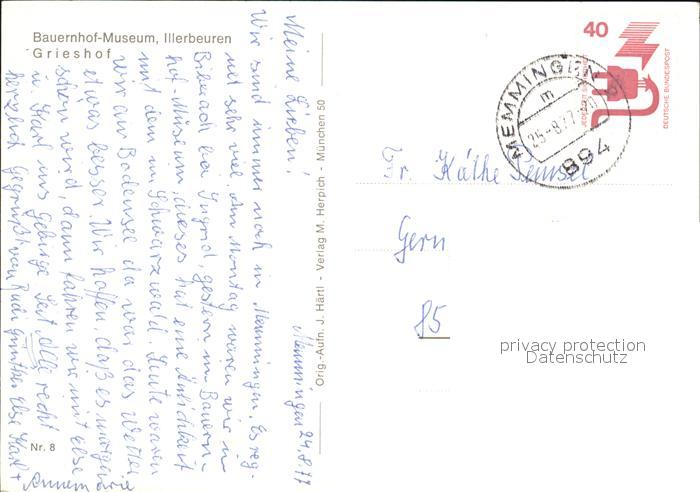 Bauernhof-Museum, Illerbeuren
Grieshof
Memmingen 24.8.77
Meine Lieben!
Wir sind immer noch in Memmingen. Es reg-
net sehr viel. Am Montag waren wir in
Biberach bei Ingrid, gestern im Bauern-
hof-Museum, dieses hat eine Ähnlichkeit
mit dem im Schwarzwald. Heute waren
wir am Bodensee da war das Wetter
etwas besser. Wir hoffen, daß es morgen
schön wird, dann fahren wir mit Else
u. Karl ins Gebirge. Seit alle recht
herzlich gegrüßt von Rudi Günther Else Karl +
Annemarie
Nr. 8
Orig.-Aufn. J. Härtl - Verlag M. Herpich - München 50
40
DEUTSCHE BUNDESPOST
MEMMINGEN
m
25.-8.77
894
Fr. Käthe
Gern
85
privacy protection
Datenschutz